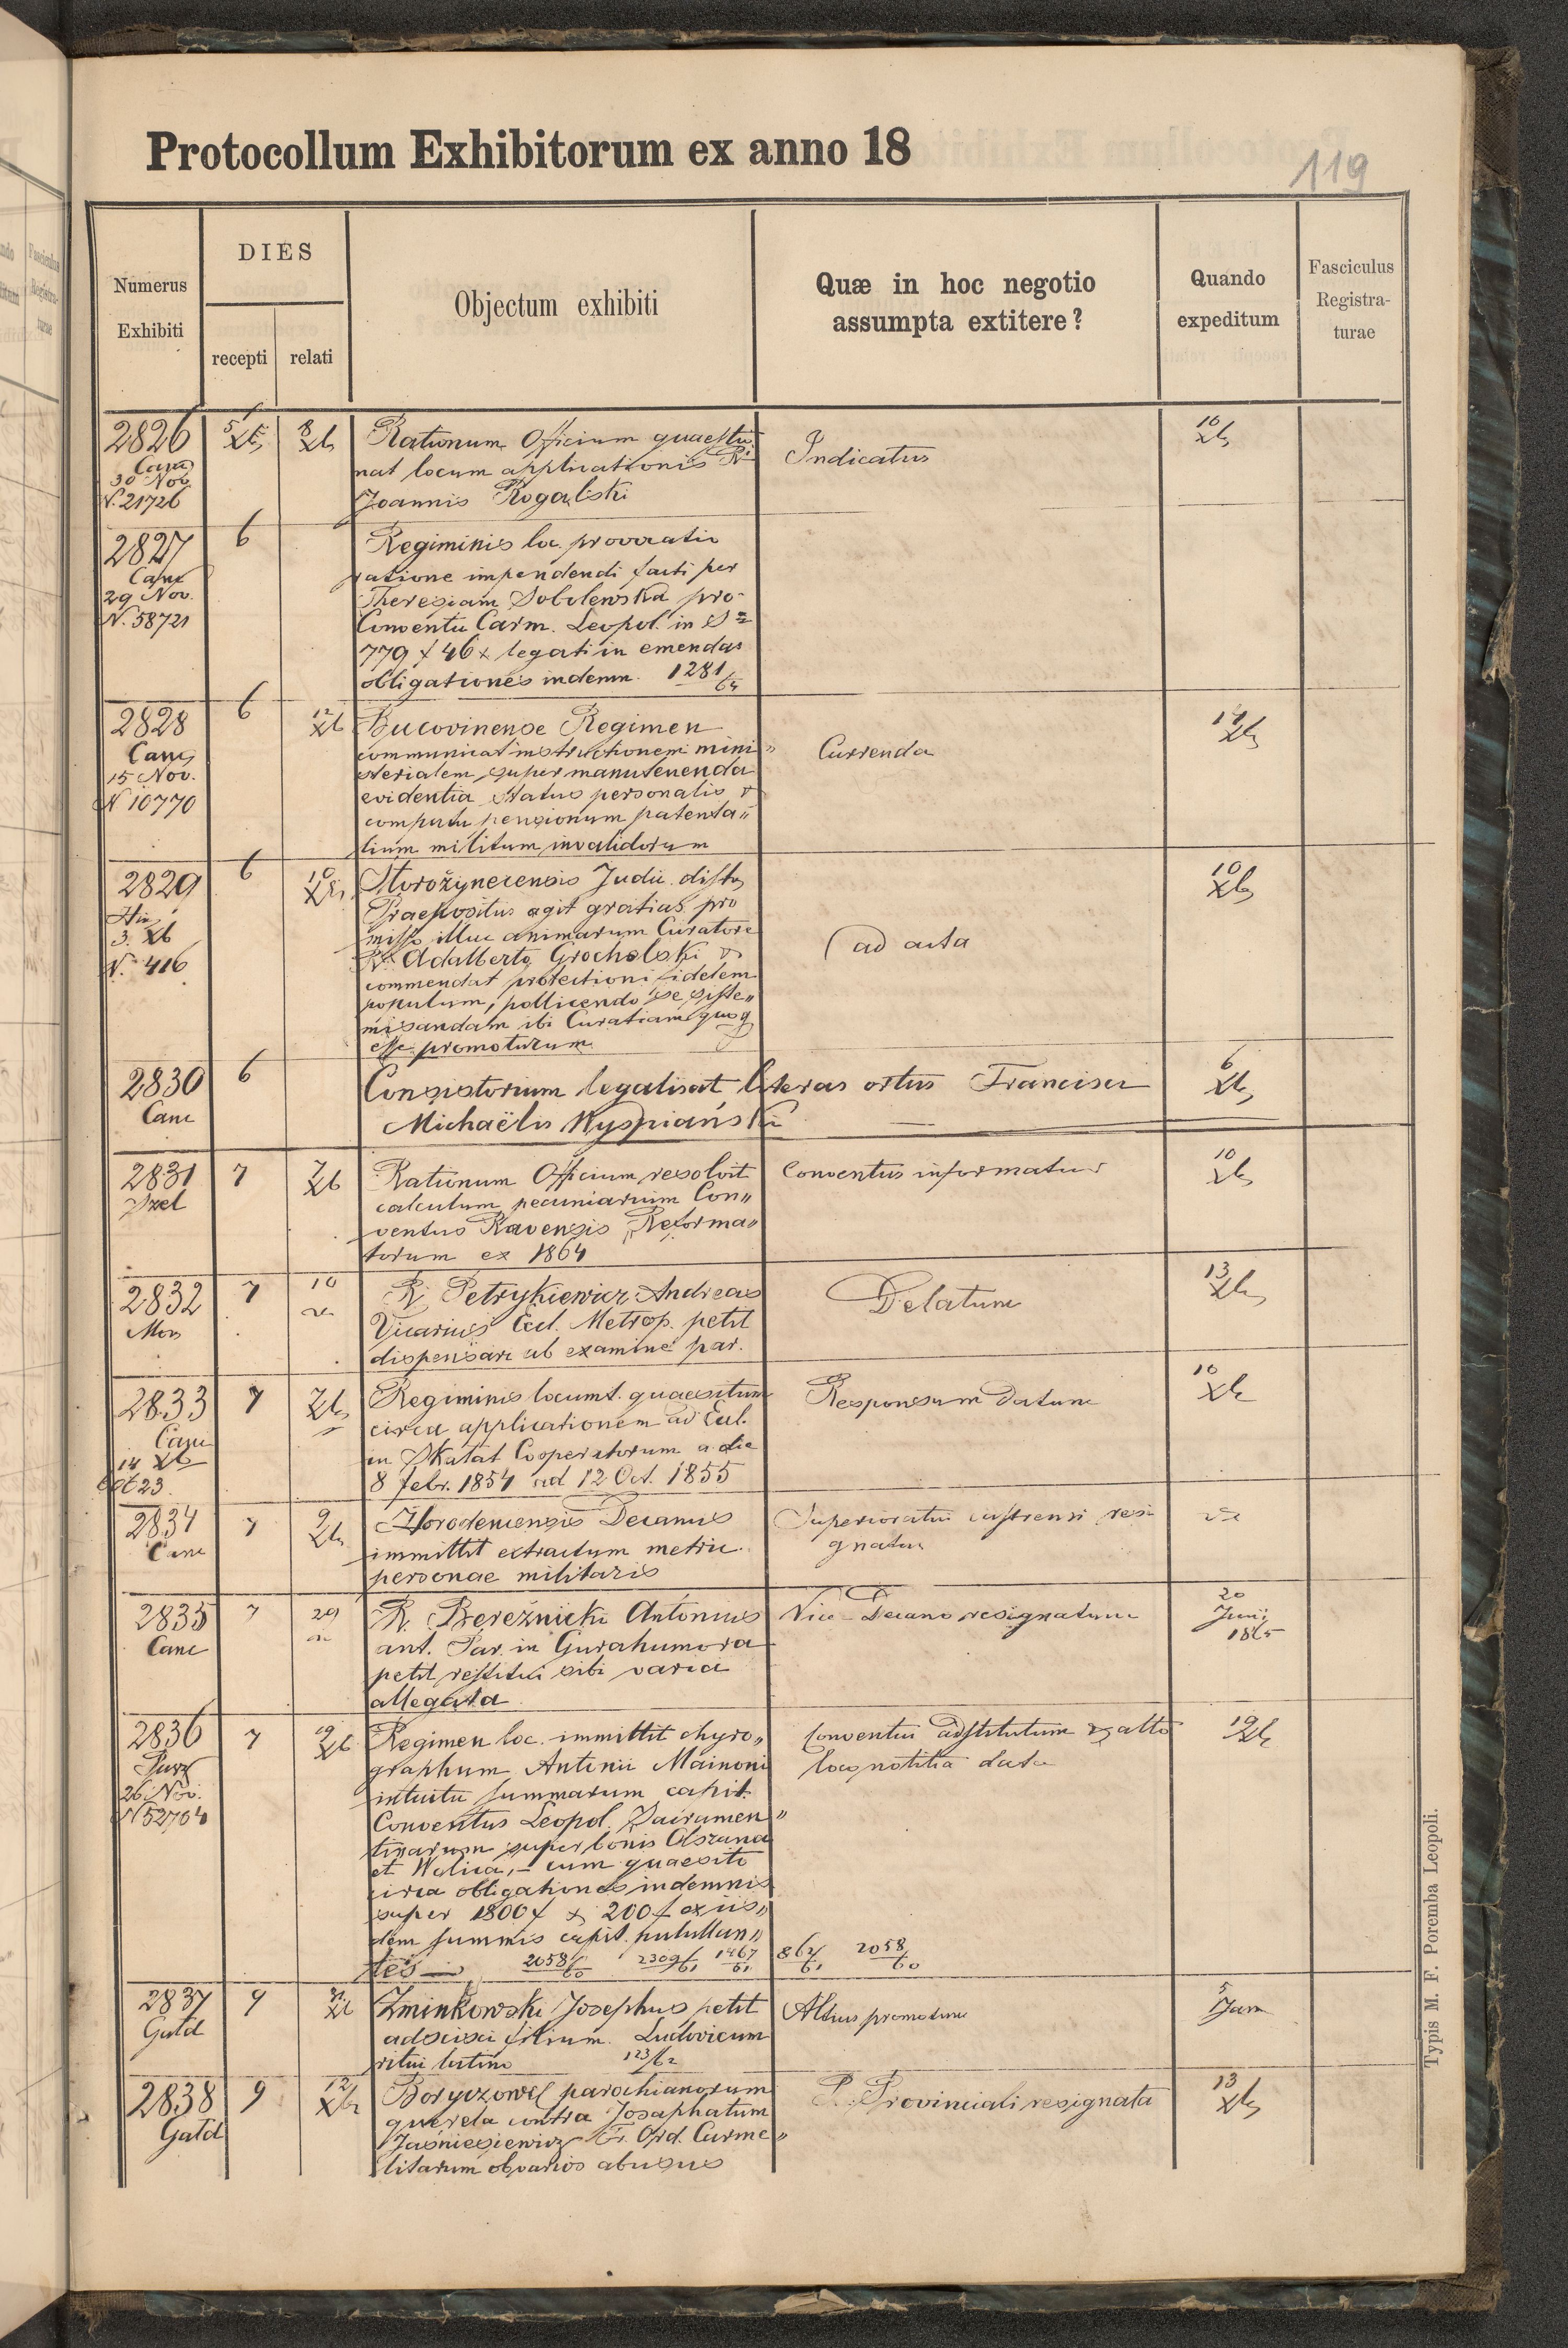 Protocollum Exhibitorum ex anno 18
119
Numerus Exhibiti
DIES
recepti
relati
Objectum exhibiti
Quæ in hoc negotio assumpta extitere?
Quando expeditum
Fasciculus Registra-turae
2826
30 Nov.
N. 21726
5 Xb
8 Xb
Rationum Officium quaesti
nat locum applicationis
Joannis Rogalski
Indicatus
10 Xb
2827
Canc
29 Nov.
N. 58721
6
Regiminis loc. provocatio
ratione impendendi facti per
Theresiam Sobolewska pro
Conventu Carm. Leopol. in
779 f 46 x legati in emendas
obligationes indemn. 1281/64
2828
Canc
15 Nov.
N 10770
6
12 Xb
Bucovinense Regimen
communicat instructionem mini„
sterialem super manutenenda
evidentia status personalis &
computu pensionum patenta„
lium militum invalidorum
Currenda
14 Xb
2829
3. Xb
N. 416
6
10 Xb
Storožynecensis Judic. distr
Praepositus agit gratias pro
misso illuc animarum Curatore
R. Adalberto Grocholski &
commendat protectioni fidelem
populum, pollicendo se syste„
misandam ibi Curatiam quoq
esse promoturum
ad acta
10 Xb
2830
Canc
6
Consistorium legalisat literas ortus Francisci
Michaëlis Wyspiański
6 Xb
2831
7
7 Xb
Rationum Officium resolvit
calculum pecuniarium Con„
ventus Ravensis Reforma„
torum ex 1864
Conventus informatur
10 Xb
2832
Mon
7
10
R. Petrykiewicz Andreas
Vicarius Eccl. Metrop. petit
dispensari ab examine par.
Delatum
13 Xb
2833
Canc
14 Xb
7
7 Xb
Regiminis locumt. quaesitum
circa applicationem ad Eccl.
in Skałat Cooperatorum a die
8 febr. 1854 ad 12 Oct. 1855
Responsum datum
10 Xb
2834
Canc
7
9 Xb
Horodencensis Decanus
immittit extractum metric.
personae militaris
Superioratui castrensi resi
gnatur
2835
Canc
7
29
R. Berežnicki Antonius
ant. Par. in Gurahumora
petit restitui sibi varia
allegata
Vice-Decano resignatum
20
Junii
1865
2836
26 Nov.
N 52704
7
19 Xb
Regimen loc. immittit chyro„
graphum Antonii Mainoni
intuitu summarum capit.
Conventus Leopol. Sacramen„
tinarum super bonis Olszana
et Wolica, – cum quaesito
circa obligationes indemnis
super 1800 f & 200 f ex iis„
dem summis capit. pulullan„
tes — 2058/60 2309/61 1467/61 864/61 2058/60
Conventui adstitutum & alto
loco notitia data
19 Xb
2837
Gald
9
31 Xb
Zminkowski Josephus petit
adscisci filium Ludovicum
ritui latino 123/62
Altius promotum
5 Jan
2838
Gald
9
12 Xb
Boryczowel parochianorum
querela contra Josaphatum
Jaśniesiewicz Fr. Ord. Carme„
litarum ob varios abusus
P. Provinciali resignata
13 Xb
Typis M. F. Poremba Leopoli.